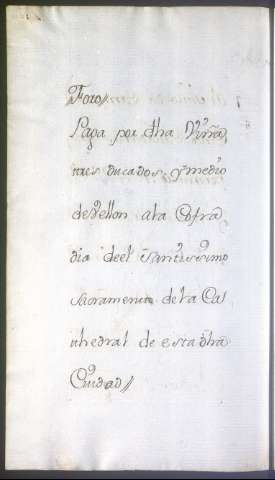 Foro//
Paga por dha Viña
tres ducados, y medio
de vellon a la Cofra
dia deel Santissimo
Sacramento de la Ca
thedral de esta dha
Ciudad//